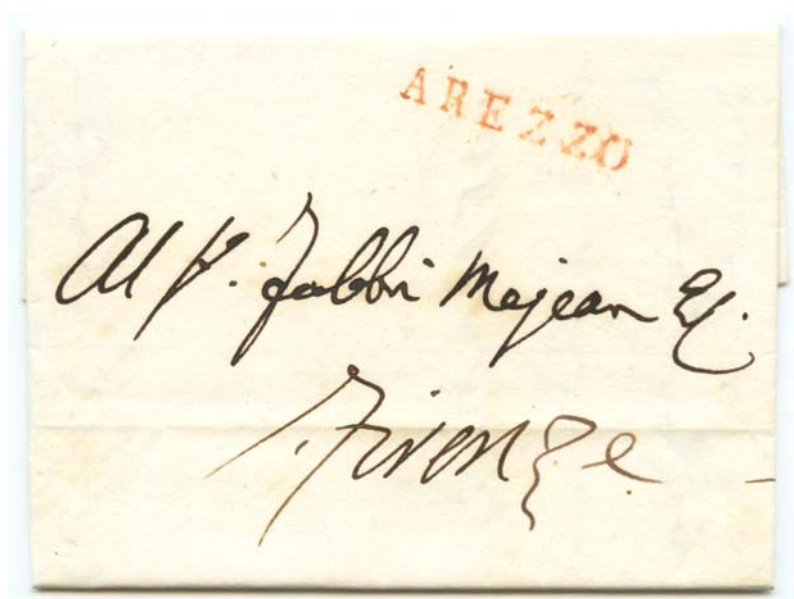 AREZZO
Al S. Fabbri Mejean &C.
Firenze